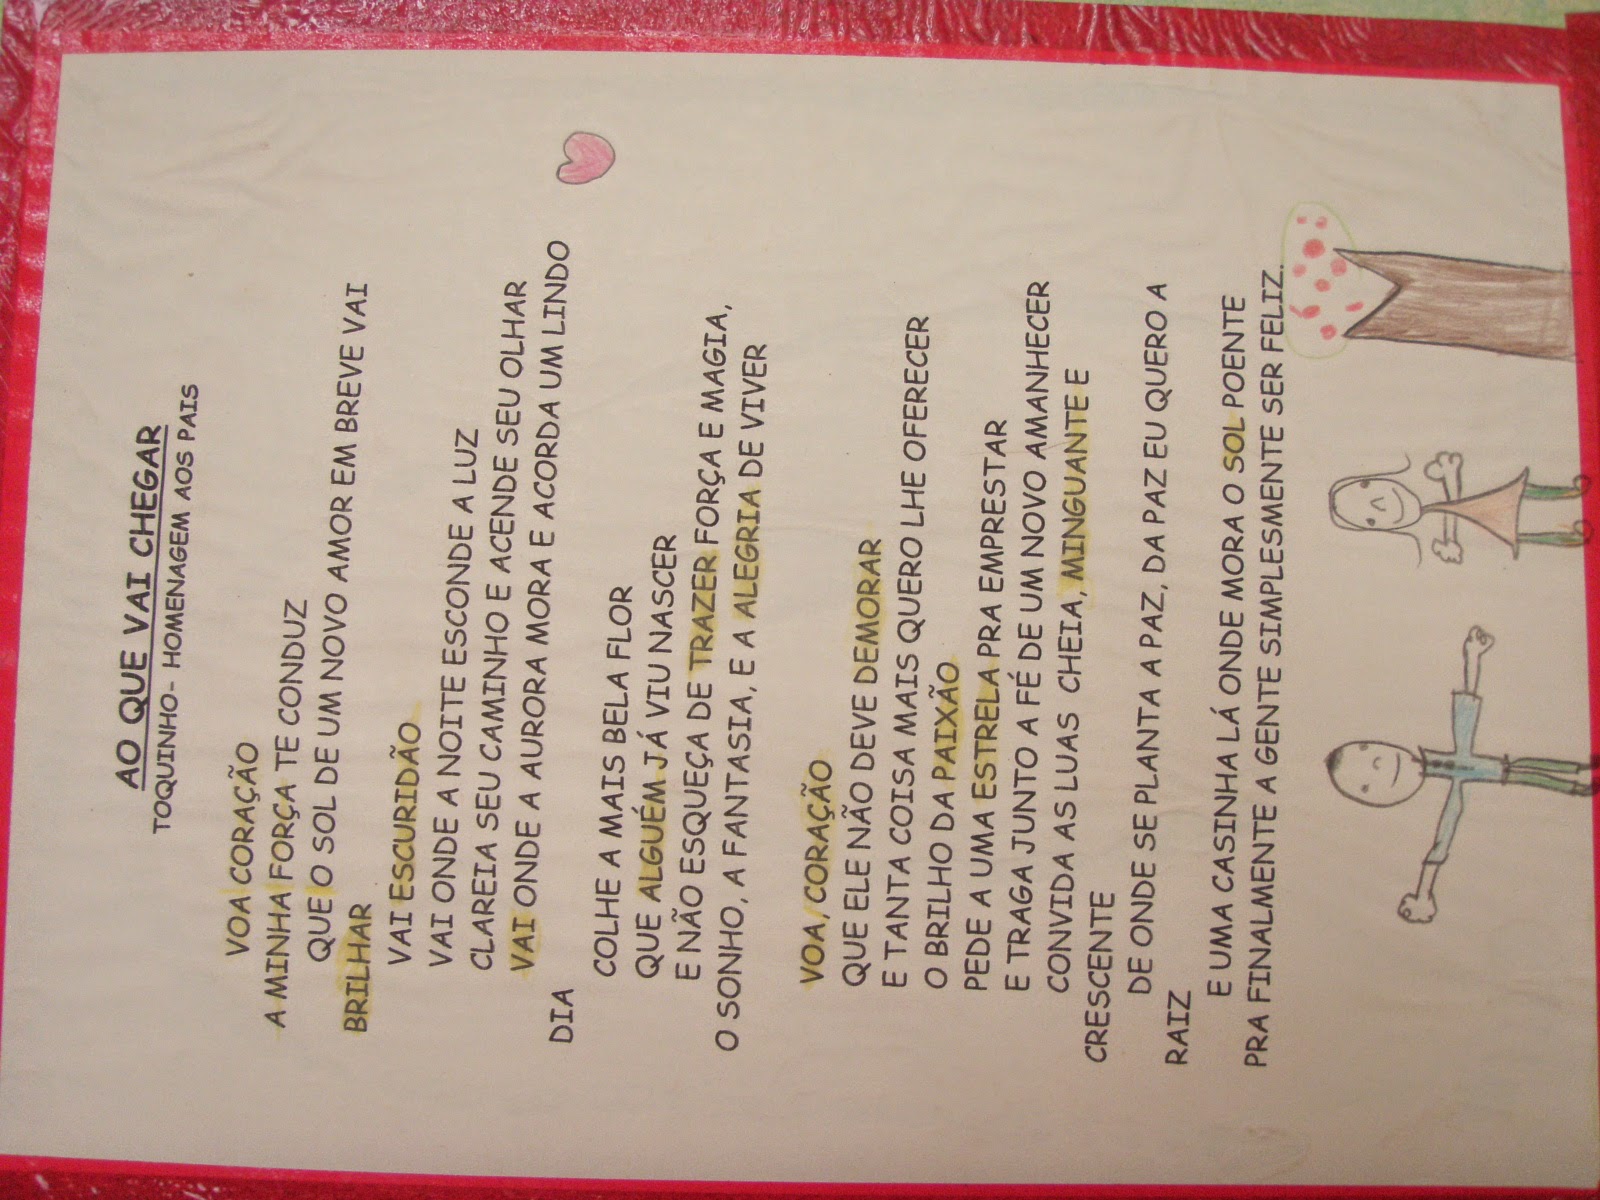 AO QUE VAI CHEGAR
TOQUINHO- HOMENAGEM AOS PAIS
VOA CORAÇÃO
A MINHA FORÇA TE CONDUZ
QUE O SOL DE UM NOVO AMOR EM BREVE VAI
BRILHAR
VAI ESCURIDÃO
VAI ONDE A NOITE ESCONDE A LUZ
CLAREIA SEU CAMINHO E ACENDE SEU OLHAR
VAI ONDE A AURORA MORA E ACORDA UM LINDO
DIA
COLHE A MAIS BELA FLOR
QUE ALGUÉM JÁ VIU NASCER
E NÃO ESQUEÇA DE TRAZER FORÇA E MAGIA,
O SONHO, A FANTASIA, E A ALEGRIA DE VIVER
VOA, CORAÇÃO
QUE ELE NÃO DEVE DEMORAR
E TANTA COISA MAIS QUERO LHE OFERECER
O BRILHO DA PAIXÃO
PEDE A UMA ESTRELA PRA EMPRESTAR
E TRAGA JUNTO A FÉ DE UM NOVO AMANHECER
CONVIDA AS LUAS CHEIA, MINGUANTE E
CRESCENTE
DE ONDE SE PLANTA A PAZ, DA PAZ EU QUERO A
RAIZ
E UMA CASINHA LÁ ONDE MORA O SOL POENTE
PRA FINALMENTE A GENTE SIMPLESMENTE SER FELIZ.